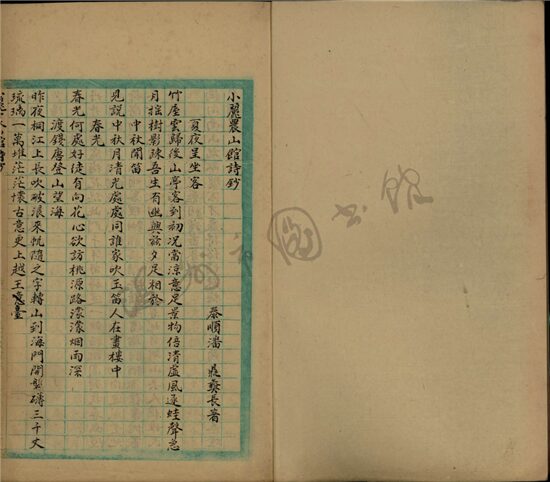 小麗農山館詩鈔
泰順潘 鼎彝長著
夏夜呈坐客
竹屋雲歸後山亭客到初况當涼意足景物倍清虛風逐蛙聲急
月搖樹影疎吾生有幽興茲夕足相於
中秋聞笛
見説中秋月清光處處同誰家吹玉笛人在畫樓中
春光
春光何處好徒有向花心欲訪桃源路濛濛烟雨深
渡錢唐登山望海
昨夜桐江上長吹破浪來帆隨之字轉山到海門開磐礴三千丈
琉璃一萬堆茫茫懷古意更上越王臺
州市圖書館